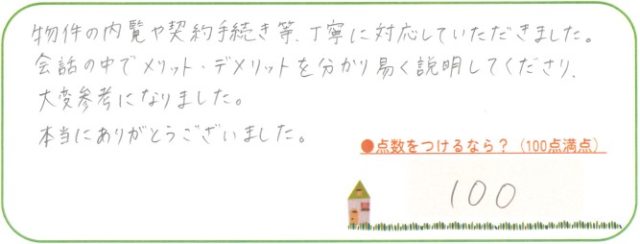 物件の内覧や契約手続き等、丁寧に対応していただきました。
会話の中でメリット・デメリットを分かり易く説明してくださり、
大変参考になりました。
本当にありがとうございました。
●点数をつけるなら？（100点満点）
100